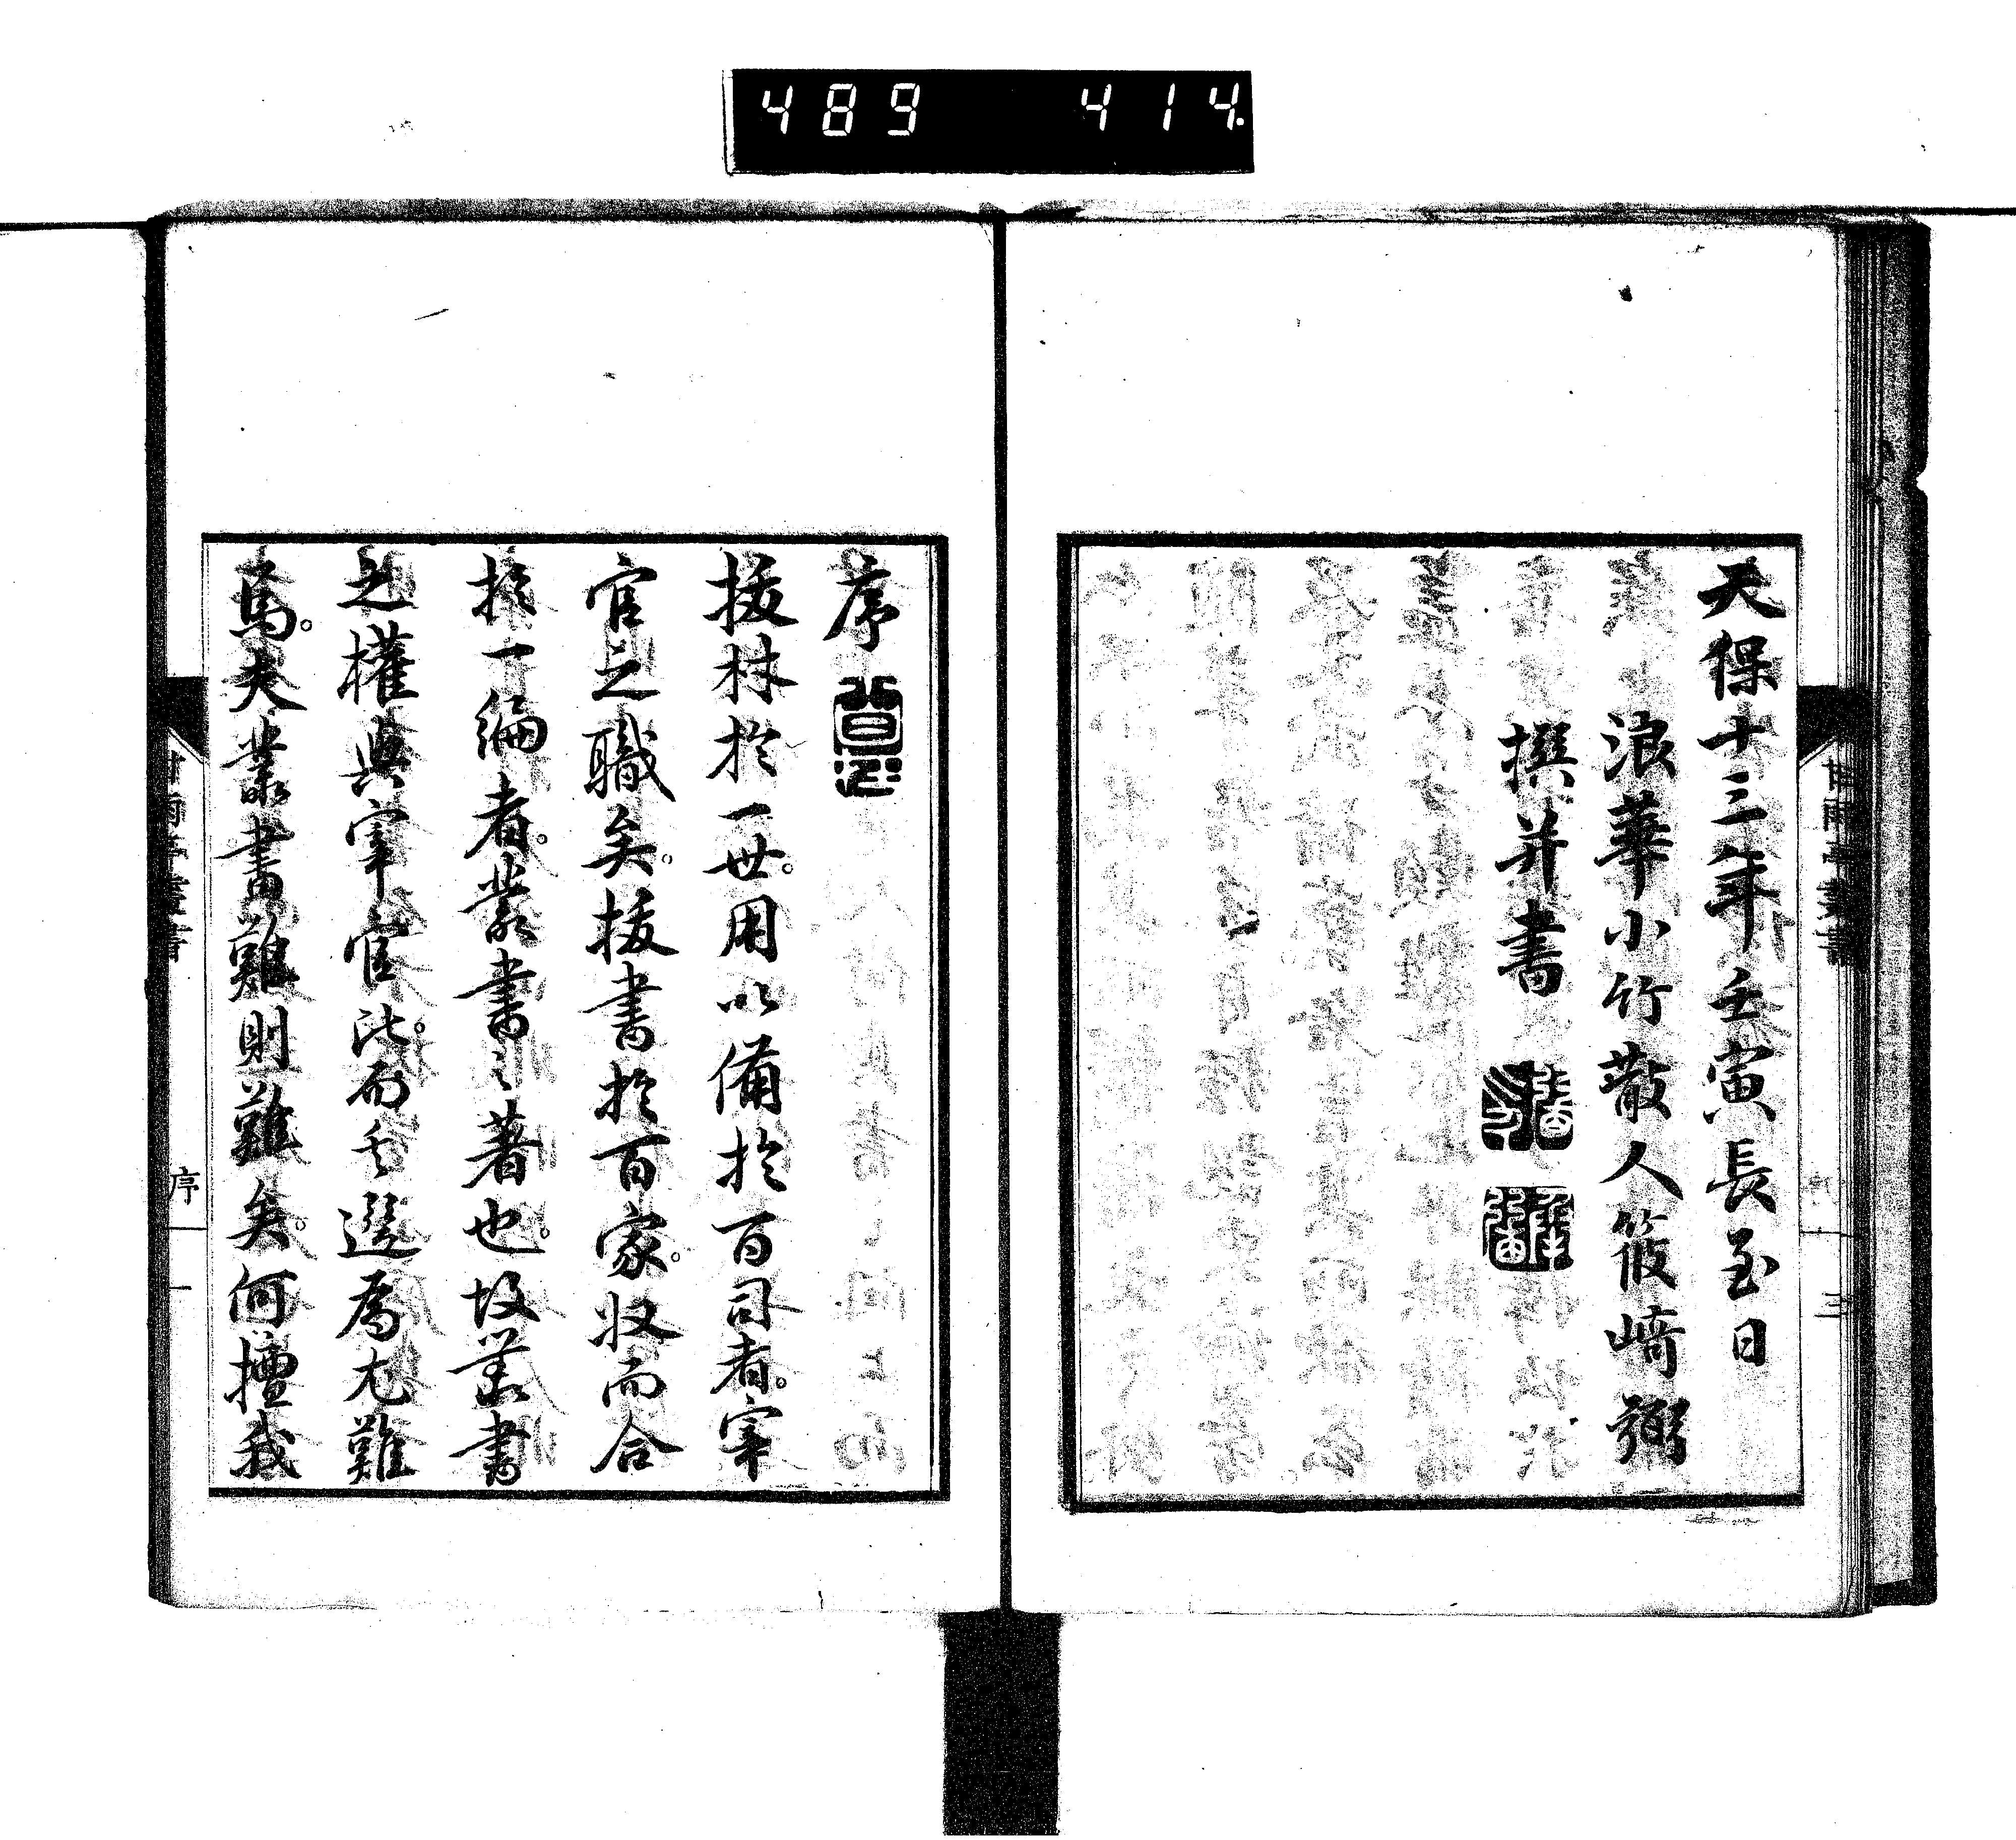 489 414.
天保十三年壬寅長至日
浪華小竹散人筱﨑弼
撰并書
甘雨亭叢書
三
序
拔材於一世。用以備於百司者。宰
官之職矣。拔書於百家。収而合
於一編者。叢書〻著也。故叢書
之權與宰官比。而其選為尤難
焉。夫叢書難則難矣。何擅我
甘雨亭叢書
序
一